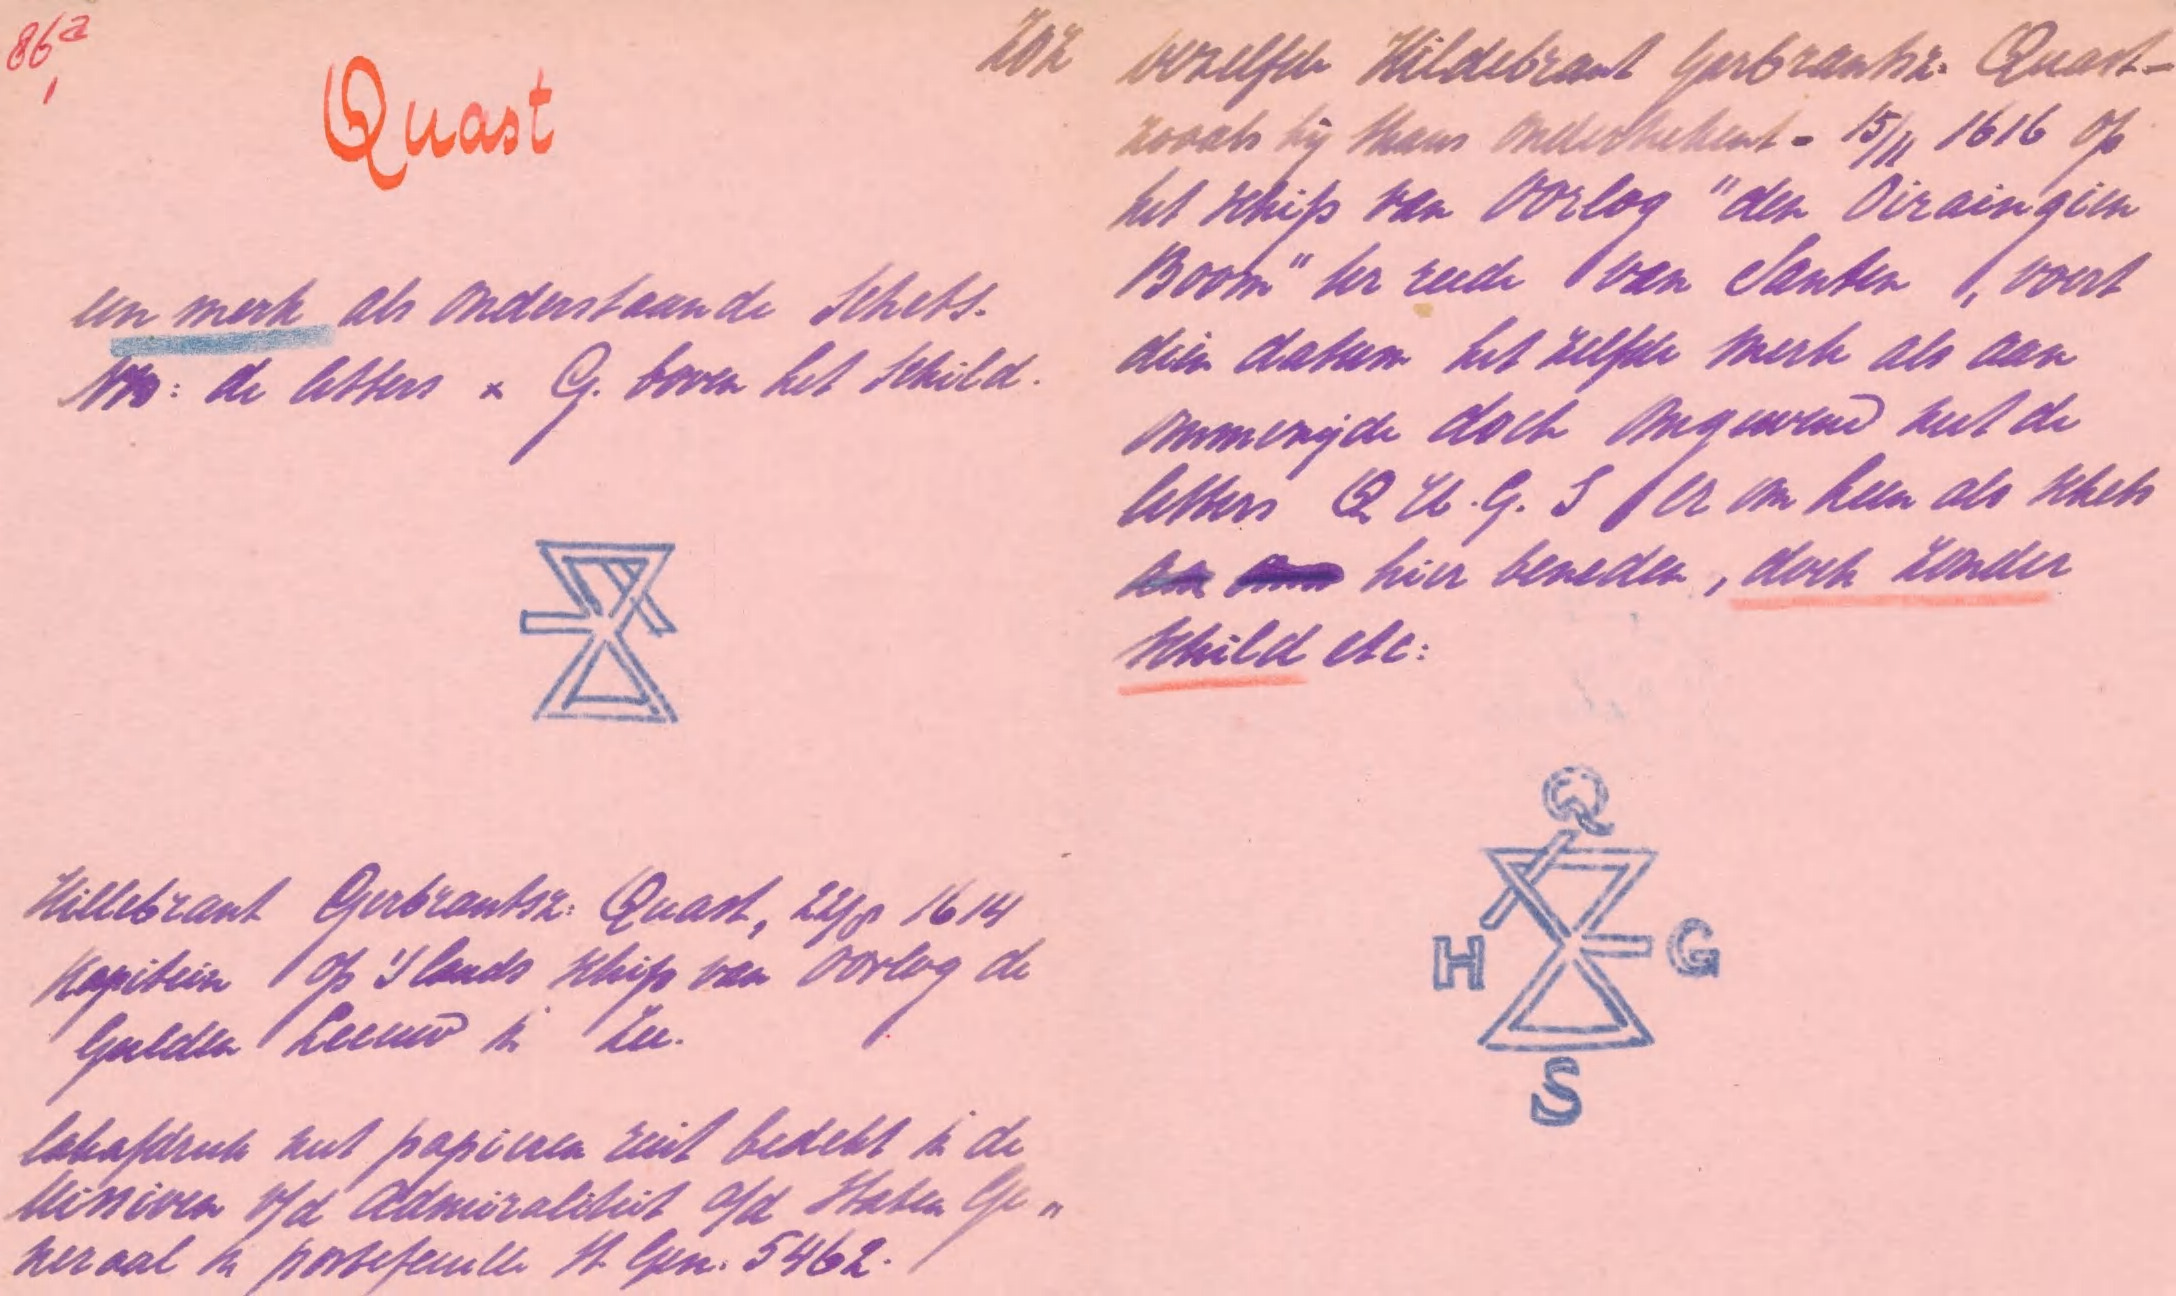 86a
Quast
een merk als onderstaande schets.
NB: de letters x G. boven het schild.
Hillebrant Gerbrantsz: Quast, 1614
Kapitein op 's lands schip van Oorlog de
Gulden Leeuw in Zee.
Lakafdruk met papieren ruit bedekt in de
Missiven v/d Admiraliteit a/d Staten Ge„
neraal in portefeuille St. Gen. 5462.
ZOZ
Dezelfde Hildebrant Gerbrantsz. Quast –
zooals hij thans onderteekent – 15/11 1616 op
het schip van Oorlog "den Oiraingien
Boom" ter reede van Santen, voert
dien datum het zelfde merk als aan
ommezijde doch omgewend met de
letters Q H. G. S er om heen als schets
hier beneden, doch zonder
schild etc:
Q
H G
S